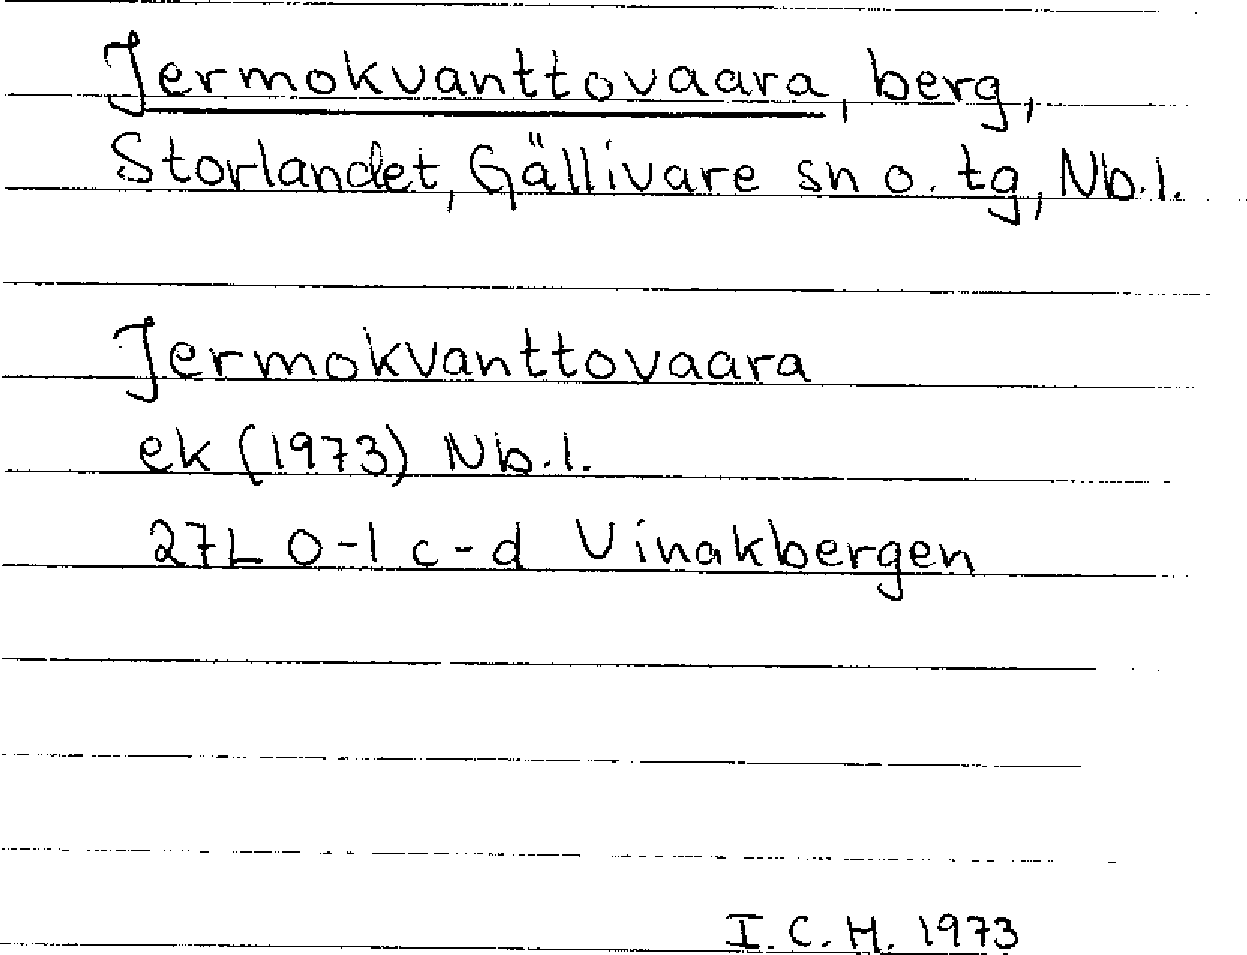 Jermokvanttovaara, berg,
Storlandet, Gällivare sn o. tg, Nb.l.
Jermokvanttovaara
ek (1973) Nb.l.
27L 0-1 c-d Vinakbergen
I.C.H. 1973